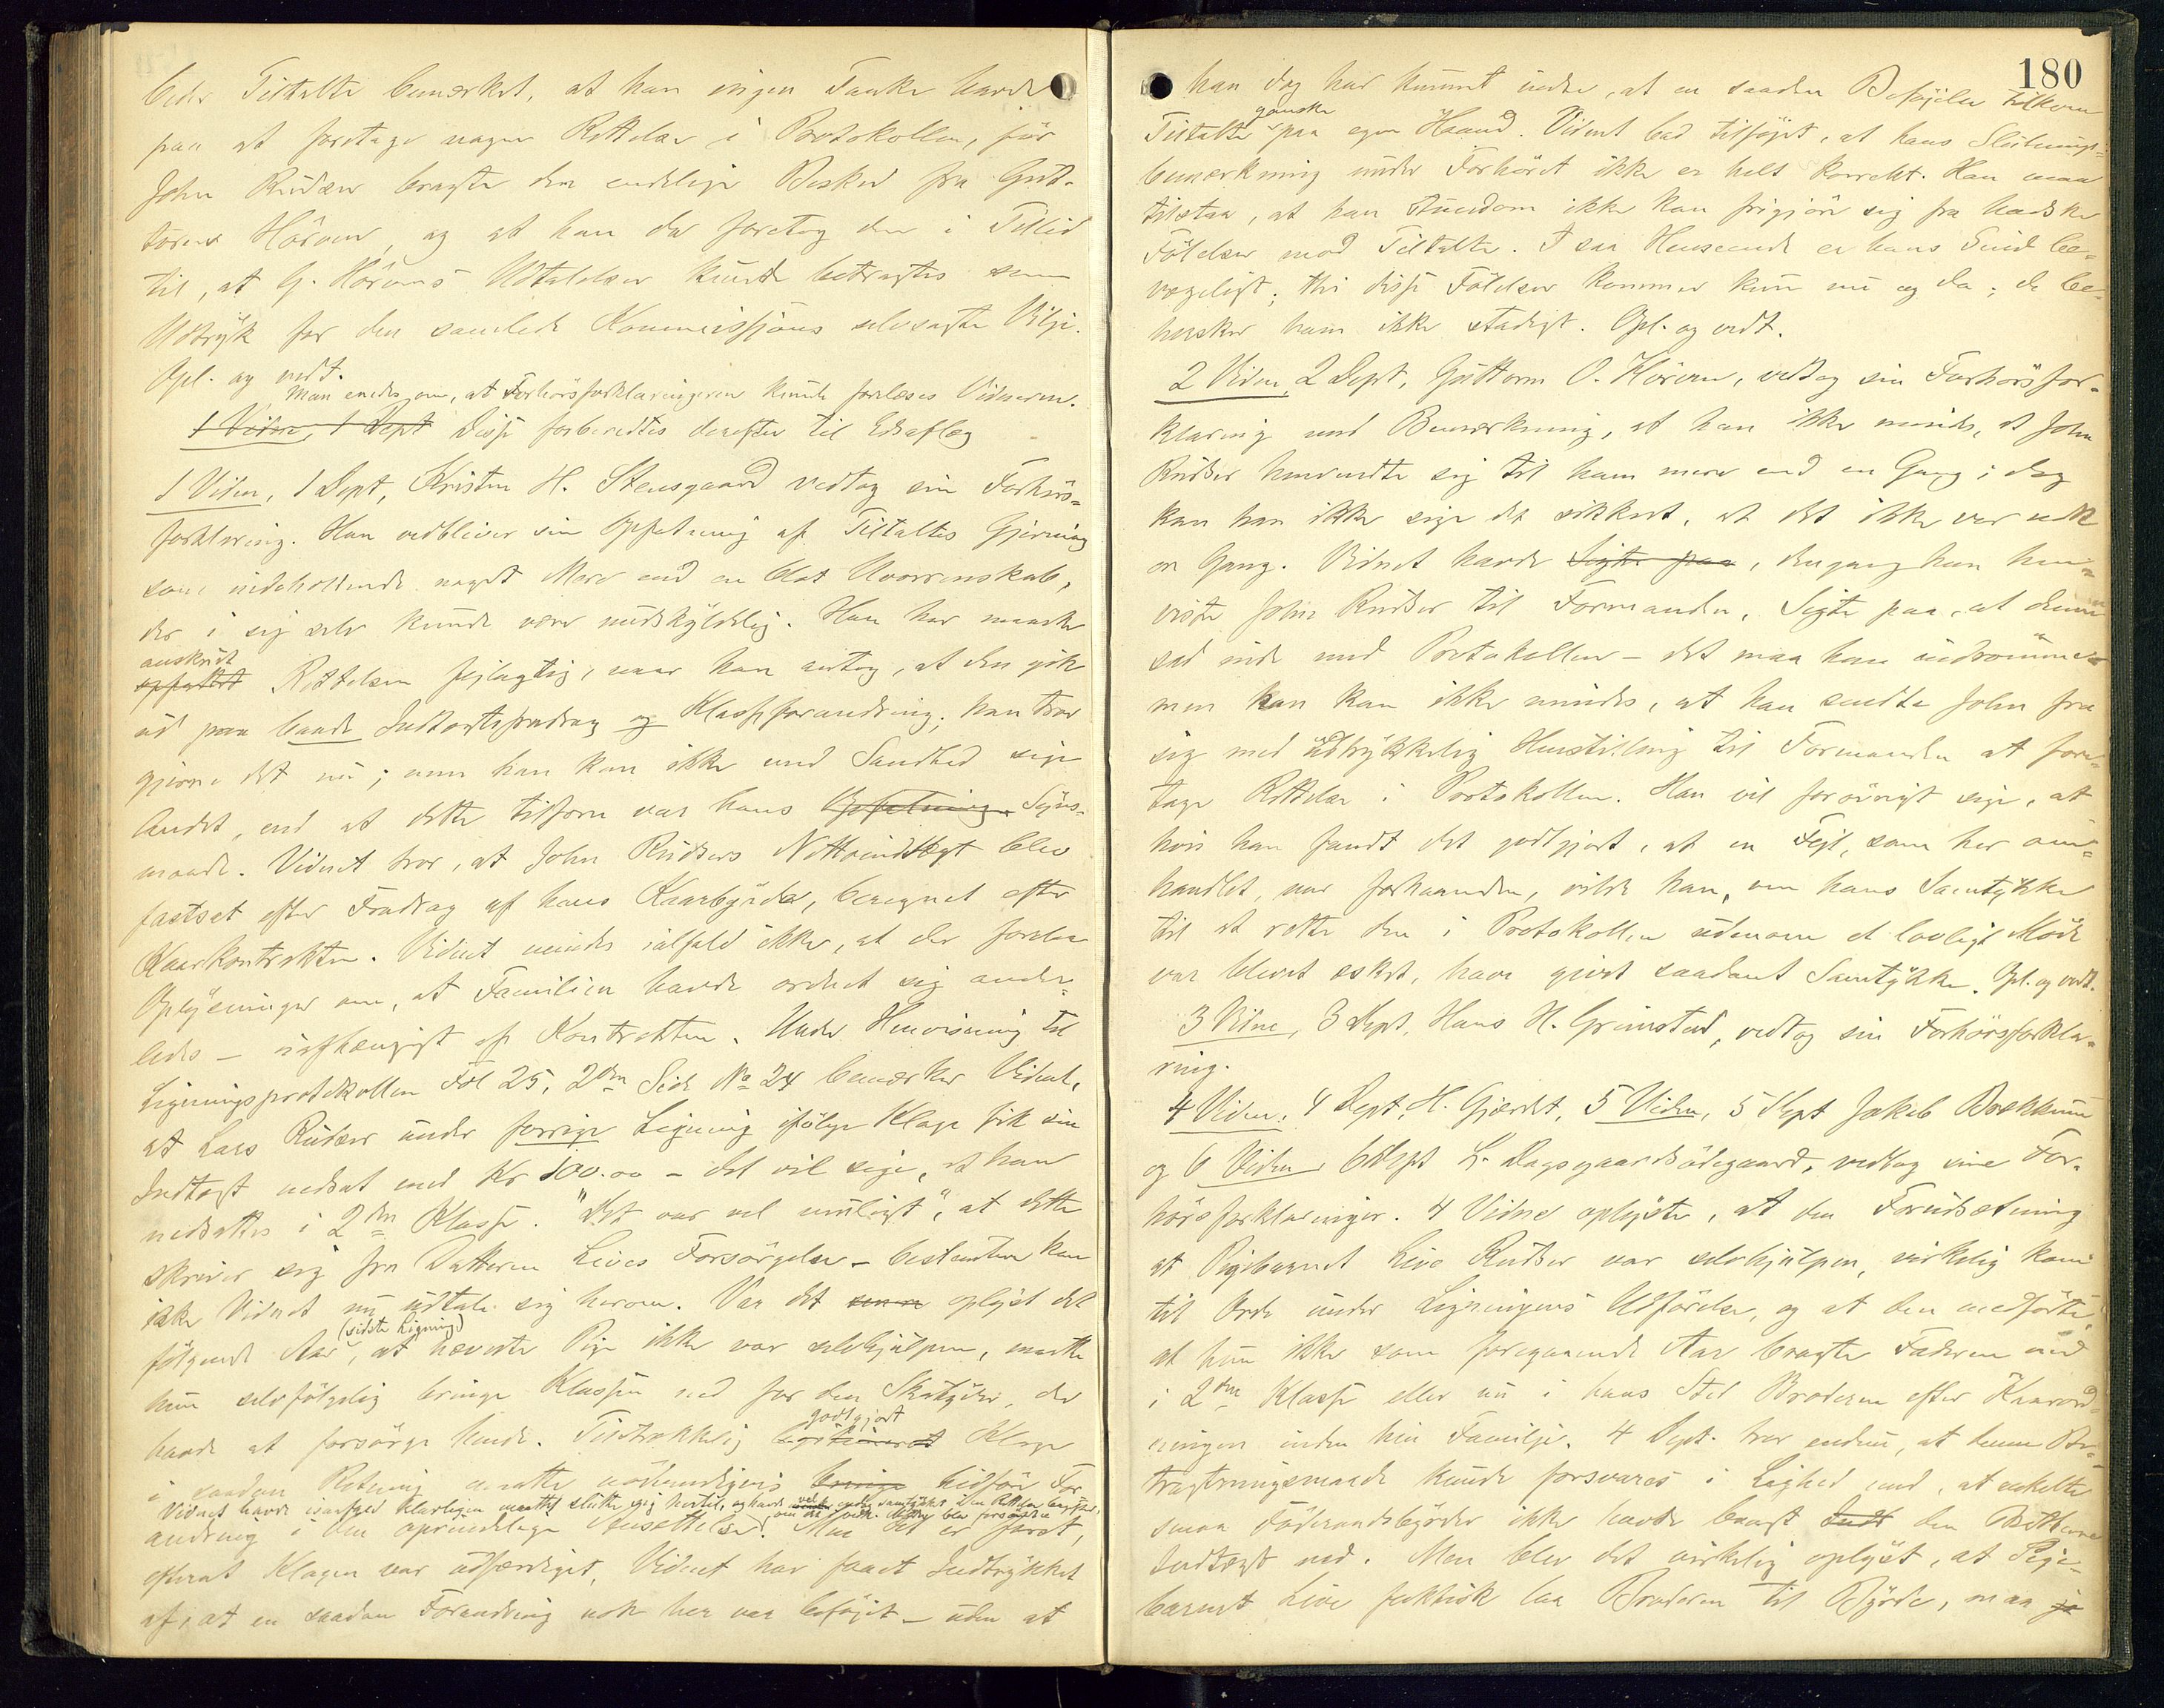 beder Tiltalte bemærket, at han ingen Tanke havde
paa at foretage nogen Rettelse i Protokollen, før
John Rudser bragte den endelige Besked fra Gut-
torm Hörven, og at han da foretog den i Tillid
til, at G. Hörvens Udtalelser kunde betragtes som
Udtryk for den samlede Kommissjons Vilje.
Opl. og vedt.
Man enedes om, at Forhörsforklaringerne kunde foreleses Vidnerne.
1 Vidne, 1 Dept Disse forberedtes derefter til Edsaflæg
1 Vidne, 1 Dept, Kristen H. Stensgaard vedtog sin Forhörs-
forklaring. Han vedbliver sin Opfatning af Tiltaltes Gjerning
som indeholdende noget Mere end en blot Uvorrenskab,
der i sig selv kunde være undskyldelig. Han har maaske
anskuet
opfattet Rettelsen fejlagtig, naar han antog, at den gik
ud paa baade Indtægtsfradrag og Klasseforandring; han tror
gjerne det nu; men han kan ikke med Sandhed sige
Andet, end at dette tilforn var hans Opfatning. Syns-
maade. Vidnet tror, at John Rudsers Nettoindtægt blev
fastsat efter Fradrag af hans Kaarbyrde, beregnet efter
Kaarkontrakten. Vidnet mindes ialfald ikke, at der forelaa
Oplysninger om, at Familien havde ordnet sig ander-
ledes – uafhængigt af Kontrakten. Under Henvisning til
Ligningsprotokollen Fol 25, 2den Side No 24 bemærker Vidnet,
at Lars Rudser under forrige Ligning ifölge Klage fik sin
Indtægt nedsat med Kr 100.00 – det vil sige, at han
nedsattes i 2den Klasse. "Det var vel muligt", at dette
skriver sig fra Datteren Lives Forsörgelse – bestemtere kan
ikke Vidnet nu udtale sig herom. Var det senere oplyst det
(sidste Ligning)
fölgende Aar, at nævnte Pige ikke var selvhjulpen, maatte
hun selvfölgelig bringe Klassen ned for den Skatyder, der
godtgjort
havde at forsörge hende. Tilstrækkelig Klage
i saadan Retning maatte nödvendigvis bringe bidföre For
Vidnet havde isaafald klarligen maattet slutte sig hertil, og havde vel endog samtykket i den Rettelse
andring i den oprindelige Ansettelse. Men det er först,
efterat Klagen var udfærdiget, Vidnet har faaet Indtrykket
af, at en saadan Forandring nok her var beföjet – uden at
180
han dog har kunnet indse, at en saadan Beföjelse tilkom
ganske
Tiltalte paa egen Haand. Vidnet bad tilföjet, at hans Slutnings-
bemærkning under Forhöret ikke er helt korrekt. Han maa
tilstaa, at han stundom ikke kan frigjöre sig fra hadske
Fölelser mod Tiltalte. I saa Henseende er hans Sind be-
vægeligt; thi disse Fölelser kommer kun nu og da; de be-
hersker ham ikke stadigt. Opl. og vedt.
2 Vidne, 2 Dept, Guttorm O. Hörven, vedtog sin Forhörsfor-
klaring med Bemærkning, at han ikke mindes, at John
Rudser henvendte sig til ham mere end en Gang; dog
kan han ikke sige det sikkert, at det ikke var mere end
en Gang. Vidnet havde Sigte paa, dengang han hen-
viste John Rudser til Formanden, Sigte paa, at denne
sad inde med Protokollen – det maa han indrömme –
men han kan ikke mindes, at han sendte John fra
sig med udtrykkelig Henstilling til Formanden at fore-
tage Rettelse i Protokollen. Han vil forövrigt sige, at
hvis han fandt det godtgjort, at en Fejl, som her om-
handlet, var forhaanden, vilde han, om hans Samtykke
til at rette den i Protokollen udenom et lovligt Möde
var blevet æsket, have givet saadant Samtykke. Opl. og vedt.
3 Vidne, 3 Dept. Hans H. Grimstad, vedtog sin Forhörsforkla-
ring.
4 Vidne, 4 Dept, H. Gjærdet, 5 Vidne, 5 Dept Jakob Bækkum
og 6 Vidne 6 Dept L. Dagsgaardsödegaard, vedtog sine For-
hörsforklaringer. 4 Vidne oplyste, at den Forudsætning
at Pigebarnet Live Rudser var selvhjulpen, virkelig kom
til Orde under Ligningens Udförelse, og at den medförte,
at hun ikke som foregaaende Aar bragte Faderen ned
i 2den Klasse eller nu i hans Sted Broderen efter Kaarord-
ningen inden hin Familje. 4 Dept. tror endnu, at denne Be-
tragtningsmaade kunde forsvares i Lighed med, at enkelte
smaa Föderaadsbyrder ikke havde bragt Indt den Betalerens
Indtægt ned. Men blev det virkelig oplyst, at Pige-
barnet Live faktisk laa Broderen til Byrde, maa jo